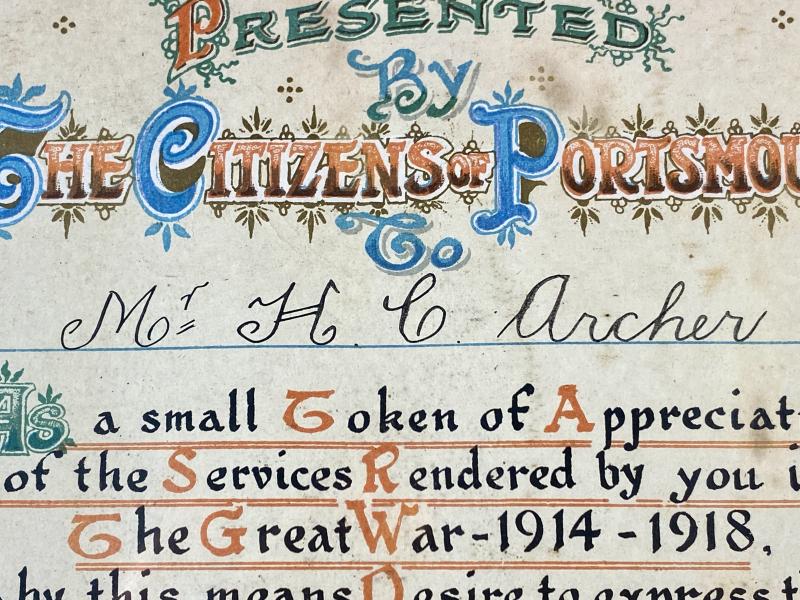 PRESENTED
By
THE CITIZENS OF PORTSMOU
To
Mr H. C. Archer
As a small Token of Appreciat
of the Services Rendered by you i
The Great War-1914-1918,
by this means Desire to express t